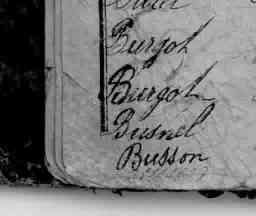 Burgot
Burgot
Busnel
Busson